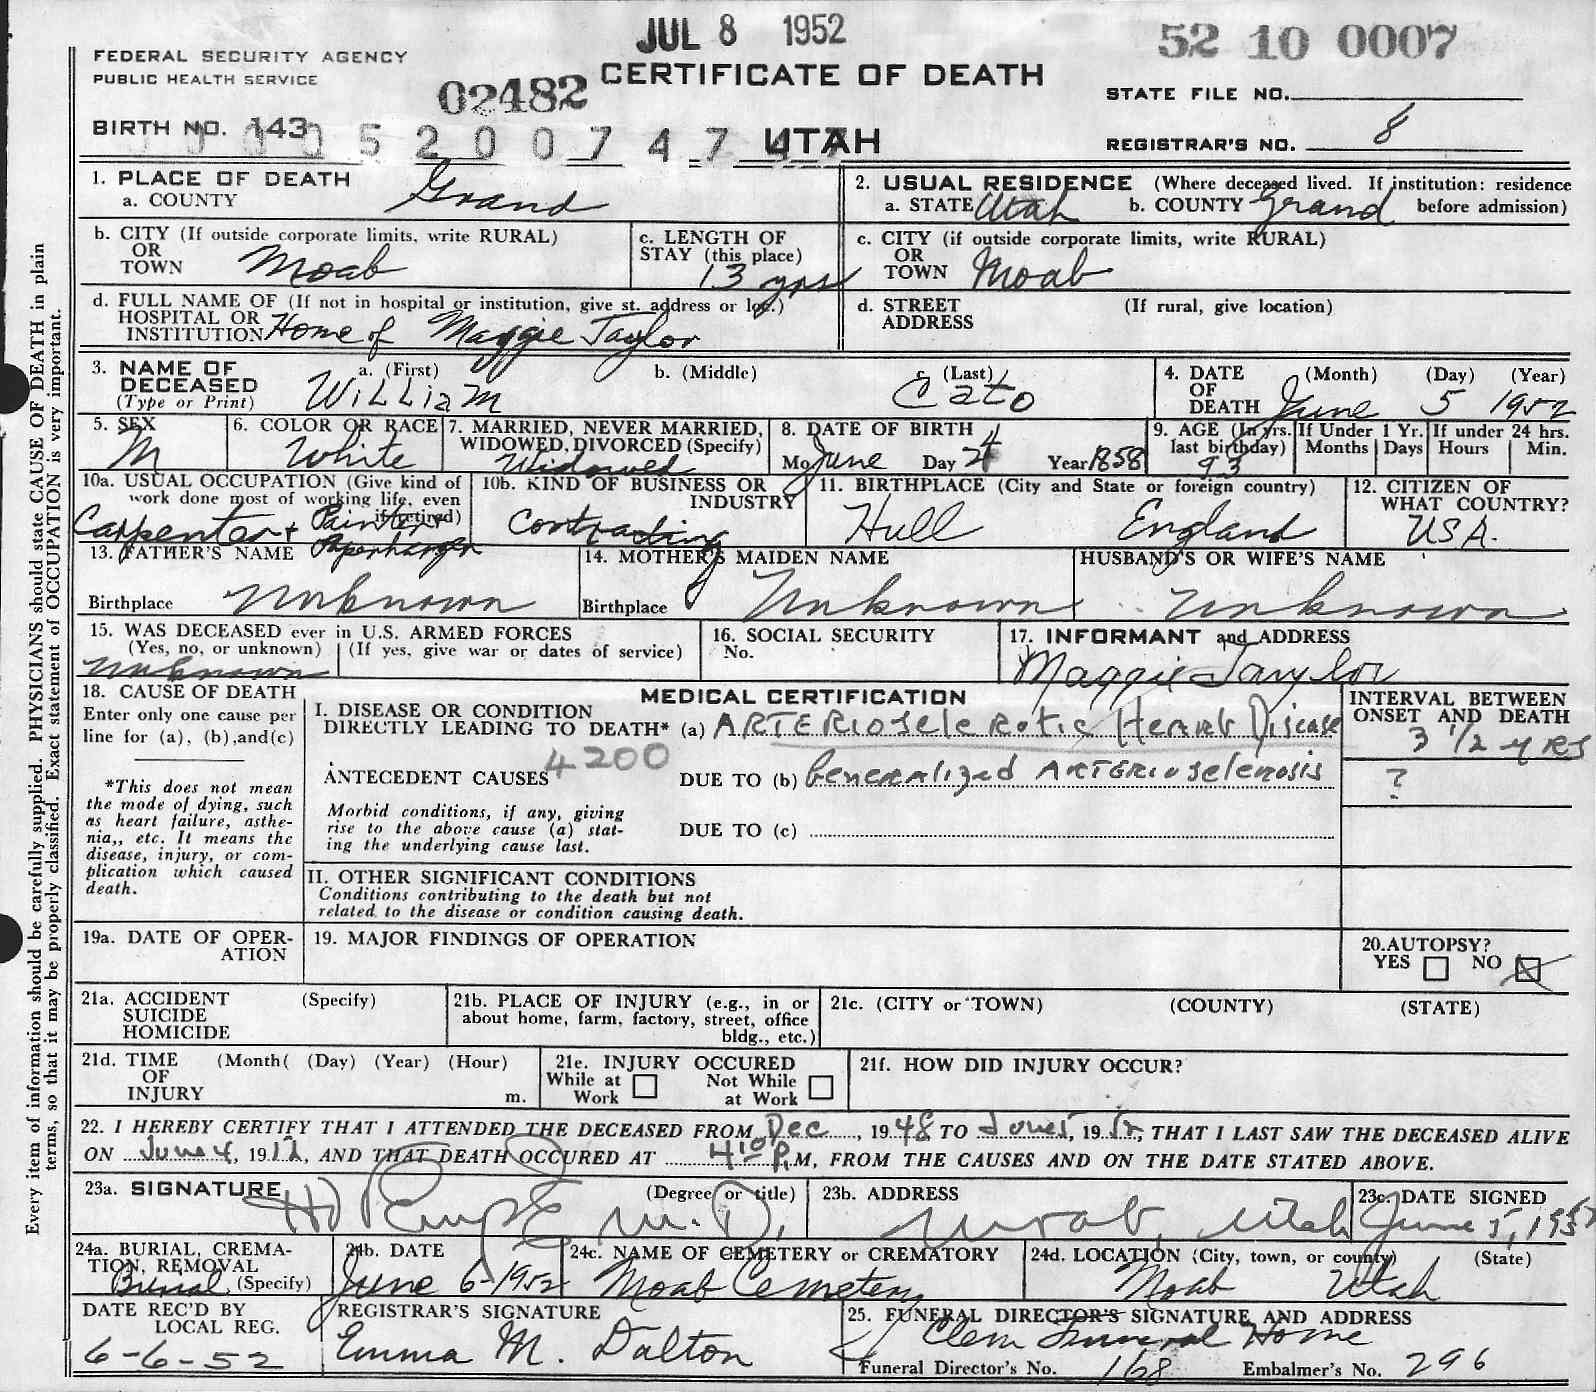 JUL 8 1952
52 10 0007
FEDERAL SECURITY AGENCY
PUBLIC HEALTH SERVICE
02482
CERTIFICATE OF DEATH
STATE FILE NO.
BIRTH NO. 143
5 2 0 0 7 4 7
UTAH
REGISTRAR'S NO. 8
1. PLACE OF DEATH
a. COUNTY Grand
2. USUAL RESIDENCE (Where deceased lived. If institution: residence before admission)
a. STATE Utah b. COUNTY Grand
b. CITY (If outside corporate limits, write RURAL)
OR
TOWN Moab
c. LENGTH OF
STAY (this place)
13 yrs
c. CITY (if outside corporate limits, write RURAL)
OR
TOWN Moab
d. FULL NAME OF (If not in hospital or institution, give st. address or loc.)
HOSPITAL OR
INSTITUTION Home of Maggie Taylor
d. STREET (If rural, give location)
ADDRESS
3. NAME OF
DECEASED
(Type or Print)
a. (First) b. (Middle) c. (Last)
William Cato
4. DATE (Month) (Day) (Year)
OF
DEATH June 5 1952
5. SEX
M
6. COLOR OR RACE
White
7. MARRIED, NEVER MARRIED,
WIDOWED, DIVORCED (Specify)
Widowed
8. DATE OF BIRTH
Mo June Day 4 Year 1858
9. AGE (In yrs.
last birthday)
93
If Under 1 Yr.
Months Days
If under 24 hrs.
Hours Min.
10a. USUAL OCCUPATION (Give kind of
work done most of working life, even
if retired)
Carpenter + Painter +
Paperhanger
10b. KIND OF BUSINESS OR
INDUSTRY
Contracting
11. BIRTHPLACE (City and State or foreign country)
Hull England
12. CITIZEN OF
WHAT COUNTRY?
USA.
13. FATHER'S NAME
Birthplace Unknown
14. MOTHER'S MAIDEN NAME
Birthplace Unknown
HUSBAND'S OR WIFE'S NAME
Unknown
15. WAS DECEASED ever in U.S. ARMED FORCES
(Yes, no, or unknown) (If yes, give war or dates of service)
Unknown
16. SOCIAL SECURITY
No.
17. INFORMANT and ADDRESS
Maggie Taylor
18. CAUSE OF DEATH
Enter only one cause per
line for (a), (b),and(c)
*This does not mean
the mode of dying, such
as heart failure, asthe-
nia,, etc. It means the
disease, injury, or com-
plication which caused
death.
MEDICAL CERTIFICATION
I. DISEASE OR CONDITION
DIRECTLY LEADING TO DEATH* (a) Arteriosclerotic Heart Disease
4200
ANTECEDENT CAUSES
DUE TO (b) Generalized Arteriosclerosis
Morbid conditions, if any, giving
rise to the above cause (a) stat-
ing the underlying cause last.
DUE TO (c)
INTERVAL BETWEEN
ONSET AND DEATH
3 1/2 yrs
?
II. OTHER SIGNIFICANT CONDITIONS
Conditions contributing to the death but not
related to the disease or condition causing death.
19a. DATE OF OPER-
ATION
19. MAJOR FINDINGS OF OPERATION
20.AUTOPSY?
YES NO
21a. ACCIDENT (Specify)
SUICIDE
HOMICIDE
21b. PLACE OF INJURY (e.g., in or
about home, farm, factory, street, office
bldg., etc.)
21c. (CITY or TOWN) (COUNTY) (STATE)
21d. TIME (Month( (Day) (Year) (Hour)
OF
INJURY m.
21e. INJURY OCCURED
While at Work Not While at Work
21f. HOW DID INJURY OCCUR?
22. I HEREBY CERTIFY THAT I ATTENDED THE DECEASED FROM Dec, 1948 TO June 5, 1952, THAT I LAST SAW THE DECEASED ALIVE
ON June 4, 1952, AND THAT DEATH OCCURED AT 4:10 P.M, FROM THE CAUSES AND ON THE DATE STATED ABOVE.
23a. SIGNATURE (Degree or title)
M.D.
23b. ADDRESS
Moab, Utah
23c. DATE SIGNED
June 5, 1952
24a. BURIAL, CREMA-
TION, REMOVAL
Burial (Specify)
24b. DATE
June 6-1952
24c. NAME OF CEMETERY OR CREMATORY
Moab Cemetery
24d. LOCATION (City, town, or county) (State)
Moab Utah
DATE REC'D BY
LOCAL REG.
6-6-52
REGISTRAR'S SIGNATURE
Emma M. Dalton
25. FUNERAL DIRECTOR'S SIGNATURE AND ADDRESS
Funeral Home
Funeral Director's No. 168 Embalmer's No. 296
Every item of information should be carefully supplied. PHYSICIANS should state CAUSE OF DEATH in plain
terms, so that it may be properly classified. Exact statement of OCCUPATION is very important.